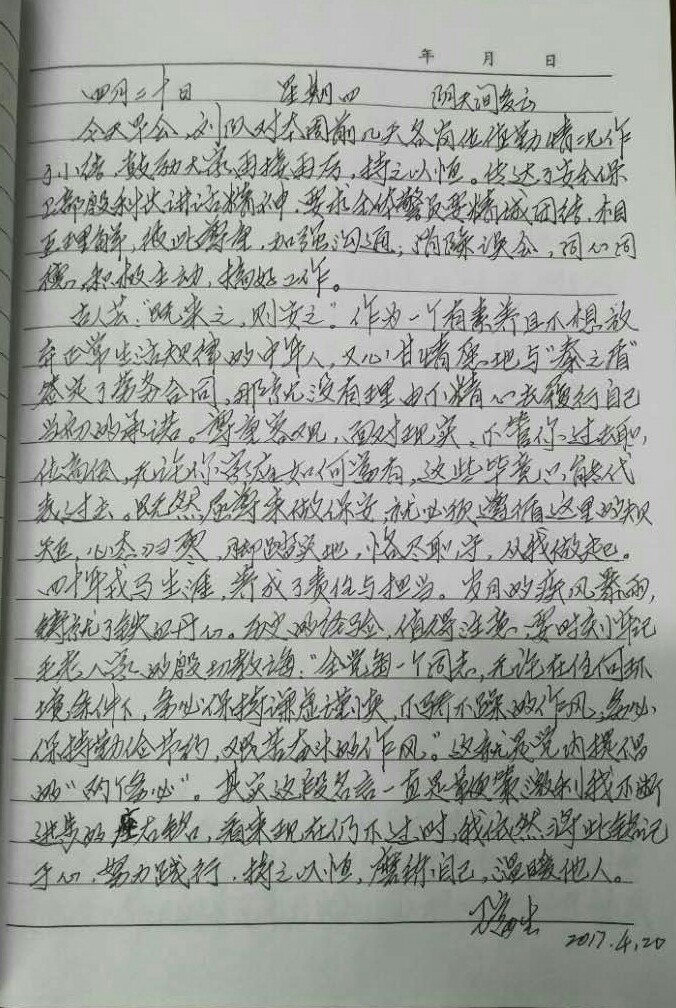 年 月 日
四月二十日 星期四 阴天间多云
今天早会，刘队对本周前几天各岗位值勤情况作
了小结，鼓励大家再接再厉，持之以恒。传达了安全保
卫部殷科长讲话精神，要求全体警员要精诚团结，相
互理解，彼此尊重，加强沟通；消除误会，同心同
德，积极主动，搞好工作。
古人云："既来之，则安之"。作为一个有素养且不想放
弃正常生活规律的中年人，又心甘情愿地与"秦之盾"
签定了劳务合同，那就没有理由不精心去履行自己
当初的承诺。尊重客观，面对现实，不管你过去职
位高低，无论你家庭如何富有，这些毕竟只能代
表过去。既然屈尊来做保安，就必须遵循这里的规
矩，心态归零，脚踏实地，恪尽职守，从我做起。
四十年戎马生涯，养成了责任与担当。岁月的疾风暴雨，
铸就了铁血丹心。历史的经验，值得注意。要时刻牢记
毛老人家的殷切教诲："全党每一个同志，无论在任何环
境条件下，务必保持谦虚谨慎，不骄不躁的作风，务必
保持勤俭节约，艰苦奋斗的作风"。这就是党内提倡
的"两个务必"。其实这段名言一直是鞭策激励我不断
进步的座右铭，看来现在仍不过时，我依然将此铭记
于心，努力践行，持之以恒，磨练自己，温暖他人。
2017.4.20